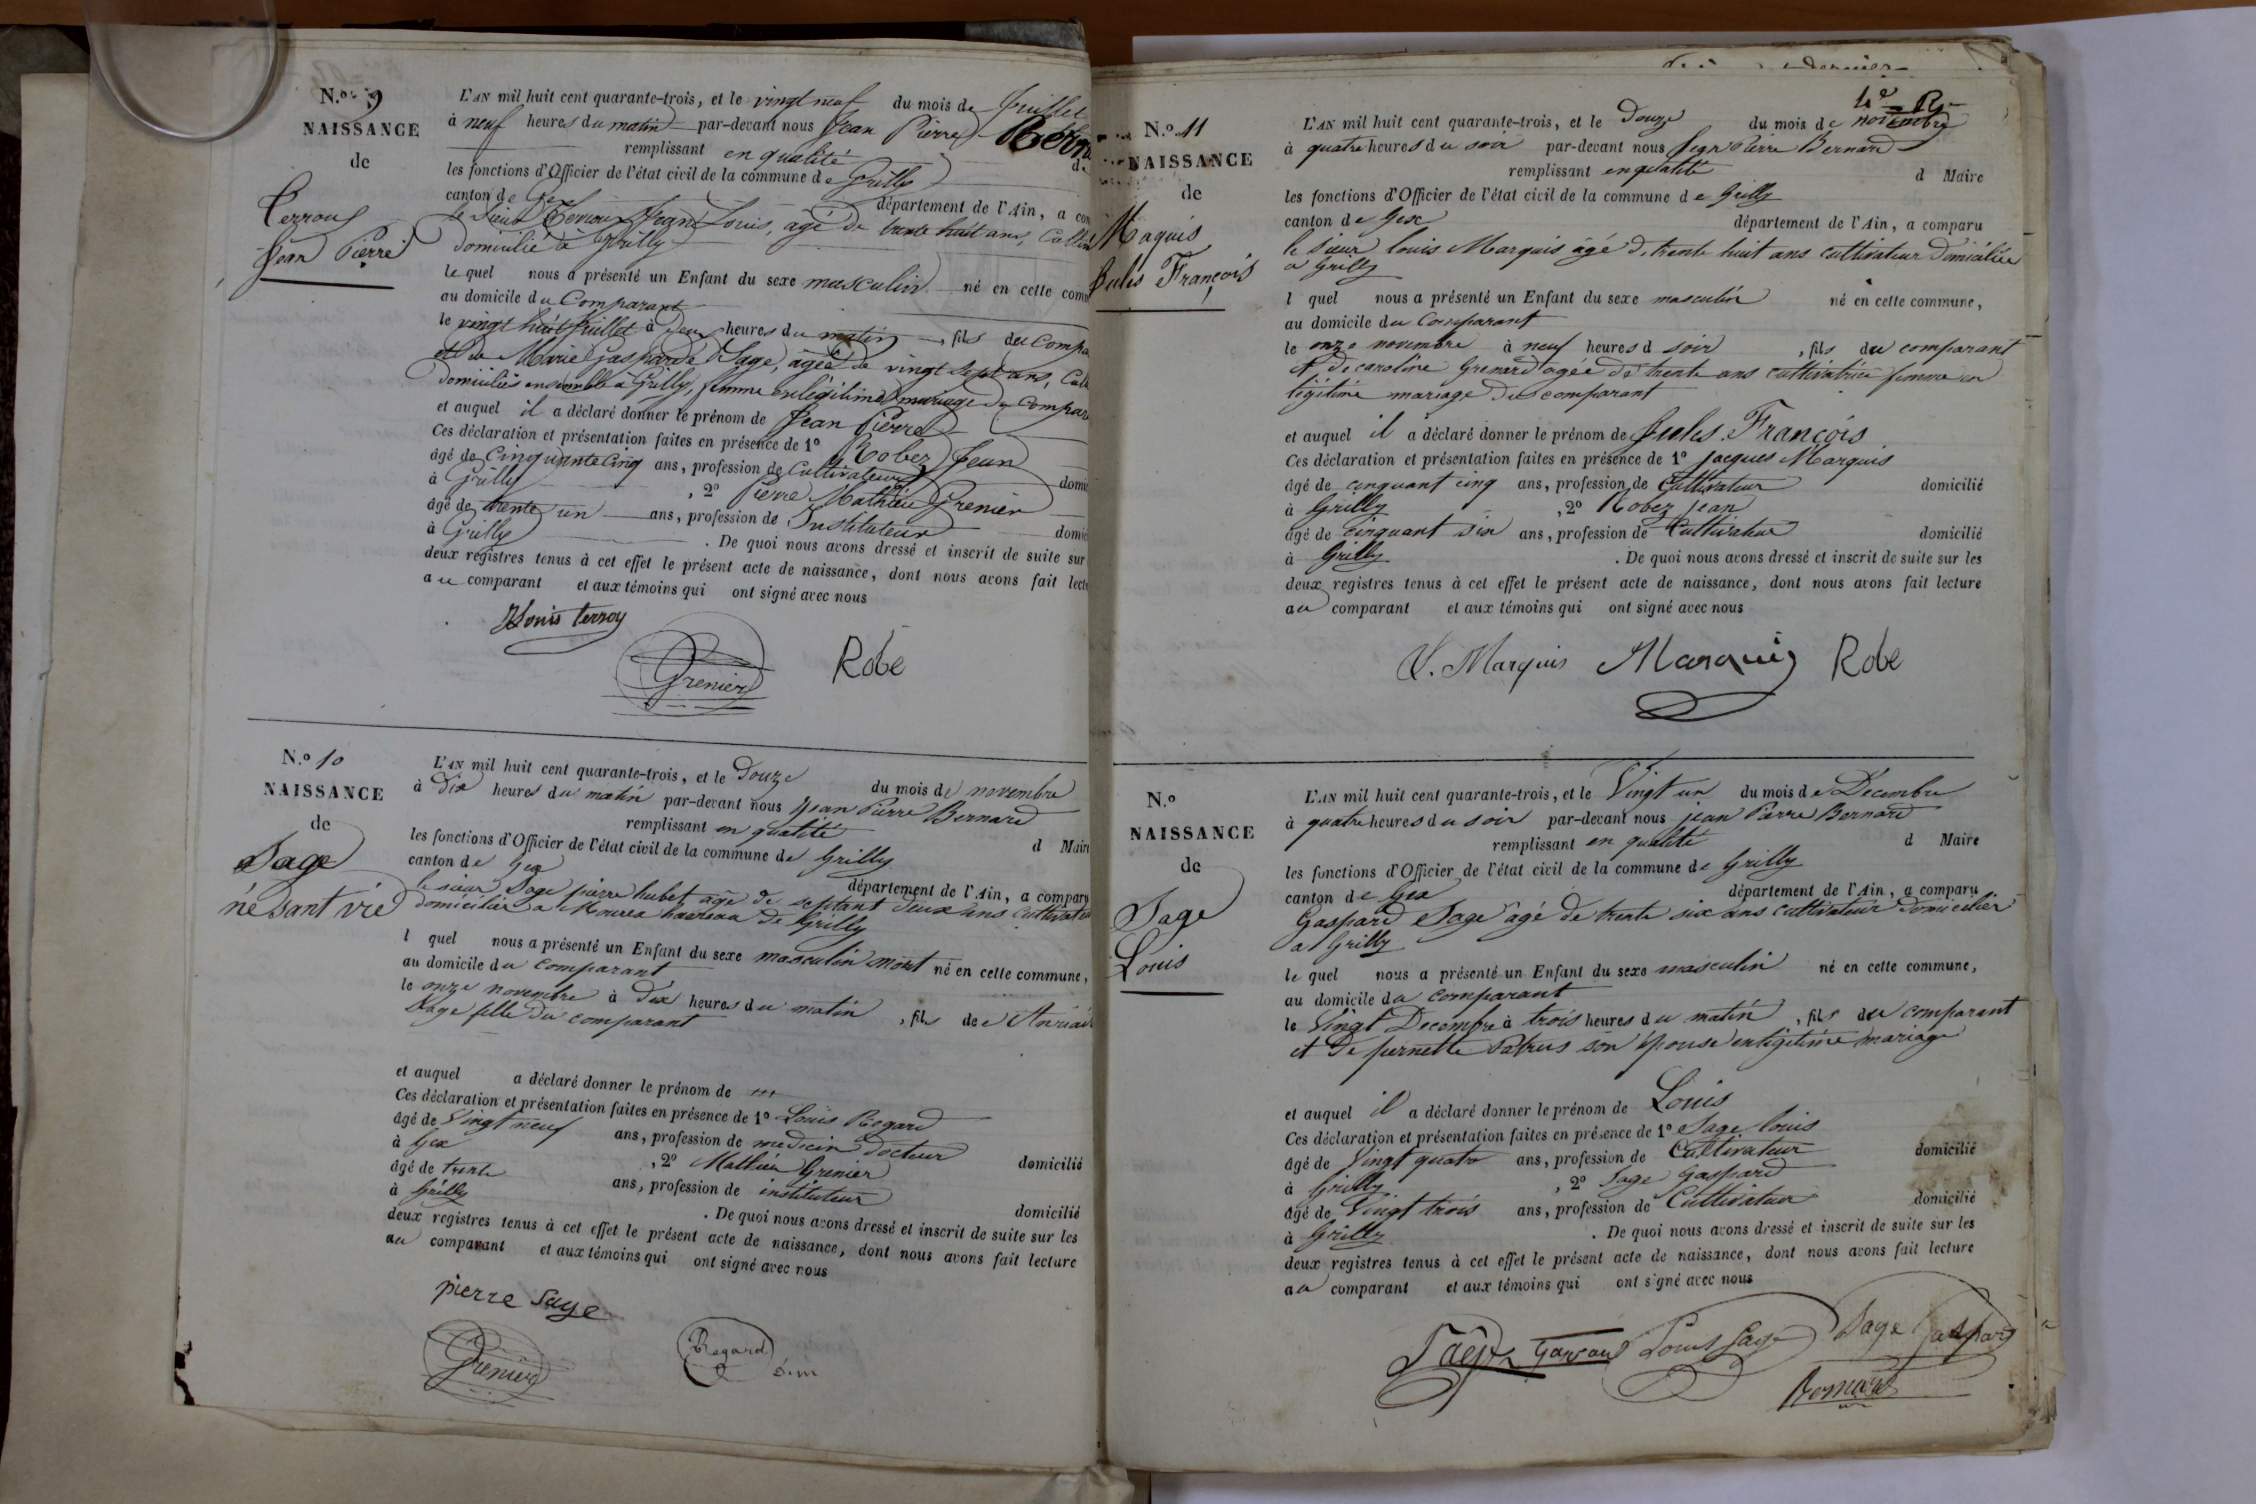 N.º 9
NAISSANCE
de
Terroux
Jean Pierre
L'AN mil huit cent quarante-trois, et le vingt neuf du mois de Juillet
à neuf heures du matin par-devant nous Jean Pierre
remplissant en qualité de
les fonctions d'Officier de l'état civil de la commune de Grilly
canton de Gex département de l'Ain, a
le Sieur Terroux Jean Louis, agé de trente huit ans,
domicilié à Grilly
le quel nous a présenté un Enfant du sexe masculin né en cette
au domicile du Comparant
le vingt huit Juillet à deux heures du matin, fils du
et de Marie Gasparde Sage, agée de vingt sept ans,
domiciliés ensemble a Grilly, femme en légitime mariage du
et auquel il a déclaré donner le prénom de Jean Pierre
Ces déclaration et présentation faites en présence de 1º Robez Jean
âgé de Cinquante cinq ans, profession de Cultivateur
à Grilly, 2º Pierre Mathieu Grenier
âgé de trente un ans, profession de Instituteur
à Grilly. De quoi nous avons dressé et inscrit de suite sur
deux registres tenus à cet effet le présent acte de naissance, dont nous avons fait
au comparant et aux témoins qui ont signé avec nous
Louis terroy
Grenier Robe
N.º 10
NAISSANCE
de
Sage
né sant vie
L'AN mil huit cent quarante-trois, et le Douze du mois de novembre
à Dix heures du matin par-devant nous Jean Pierre Bernard
remplissant en qualité d Maire
les fonctions d'Officier de l'état civil de la commune de Grilly
canton de Gex département de l'Ain, a comparu
le sieur Sage pierre hubet agé de septant deux ans
domicilier a haureau de Grilly
l quel nous a présenté un Enfant du sexe masculin mort né en cette commune,
au domicile du comparant
le onze novembre à dix heures du matin, fils de
Sage fille du comparant
et auquel a déclaré donner le prénom de
Ces déclaration et présentation faites en présence de 1º Louis Regard
âgé de Vingt neuf ans, profession de medecin docteur domicilié
à Gex, 2º Mathieu Grenier
âgé de trente ans, profession de instituteur domicilié
à Grilly. De quoi nous avons dressé et inscrit de suite sur les
deux registres tenus à cet effet le présent acte de naissance, dont nous avons fait lecture
au comparant et aux témoins qui ont signé avec nous
pierre sage
Grenier Regard
N.º 11
NAISSANCE
de
Maquis
Jules François
L'AN mil huit cent quarante-trois, et le Douze du mois de novembre
à quatre heures du soir par-devant nous Jean Pierre Bernard
remplissant en qualité d Maire
les fonctions d'Officier de l'état civil de la commune de Grilly
canton de Gex département de l'Ain, a comparu
le Sieur louis Marquis âgé de trente huit ans cultivateur Domicilié
a Grilly
l quel nous a présenté un Enfant du sexe masculin né en cette commune,
au domicile du Comparant
le onze novembre à neuf heures d soir, fils du comparant
et De caroline Grenard agée de trente ans cultivatrice femme en
légitime mariage du comparant
et auquel il a déclaré donner le prénom de Jules François
Ces déclaration et présentation faites en présence de 1º Jacques Marquis
âgé de cinquant cinq ans, profession de Cultivateur domicilié
à Grilly, 2º Robez Jean
âgé de cinquant six ans, profession de Cultivateur domicilié
à Grilly. De quoi nous avons dressé et inscrit de suite sur les
deux registres tenus à cet effet le présent acte de naissance, dont nous avons fait lecture
au comparant et aux témoins qui ont signé avec nous
L. Marquis Marquis Robe
N.º
NAISSANCE
de
Sage
Louis
L'AN mil huit cent quarante-trois, et le Vingt un du mois de Decembre
à quatre heures du soir par-devant nous jean Pierre Bernard
remplissant en qualité d Maire
les fonctions d'Officier de l'état civil de la commune de Grilly
canton de Gex département de l'Ain, a comparu
Gaspard Sage âgé de trente six ans cultivateur domicilier
a Grilly
le quel nous a présenté un Enfant du sexe masculin né en cette commune,
au domicile du comparant
le Vingt Decembre à trois heures du matin, fils du comparant
et De pernette Patrus son épouse en légitime mariage
et auquel il a déclaré donner le prénom de Louis
Ces déclaration et présentation faites en présence de 1º Sage louis
âgé de Vingt quatre ans, profession de Cultivateur domicilié
à Grilly, 2º Sage Gaspard
âgé de Vingt trois ans, profession de Cultivateur domicilié
à Grilly. De quoi nous avons dressé et inscrit de suite sur les
deux registres tenus à cet effet le présent acte de naissance, dont nous avons fait lecture
au comparant et aux témoins qui ont signé avec nous
Louis Sage Sage Gaspard
Bernard